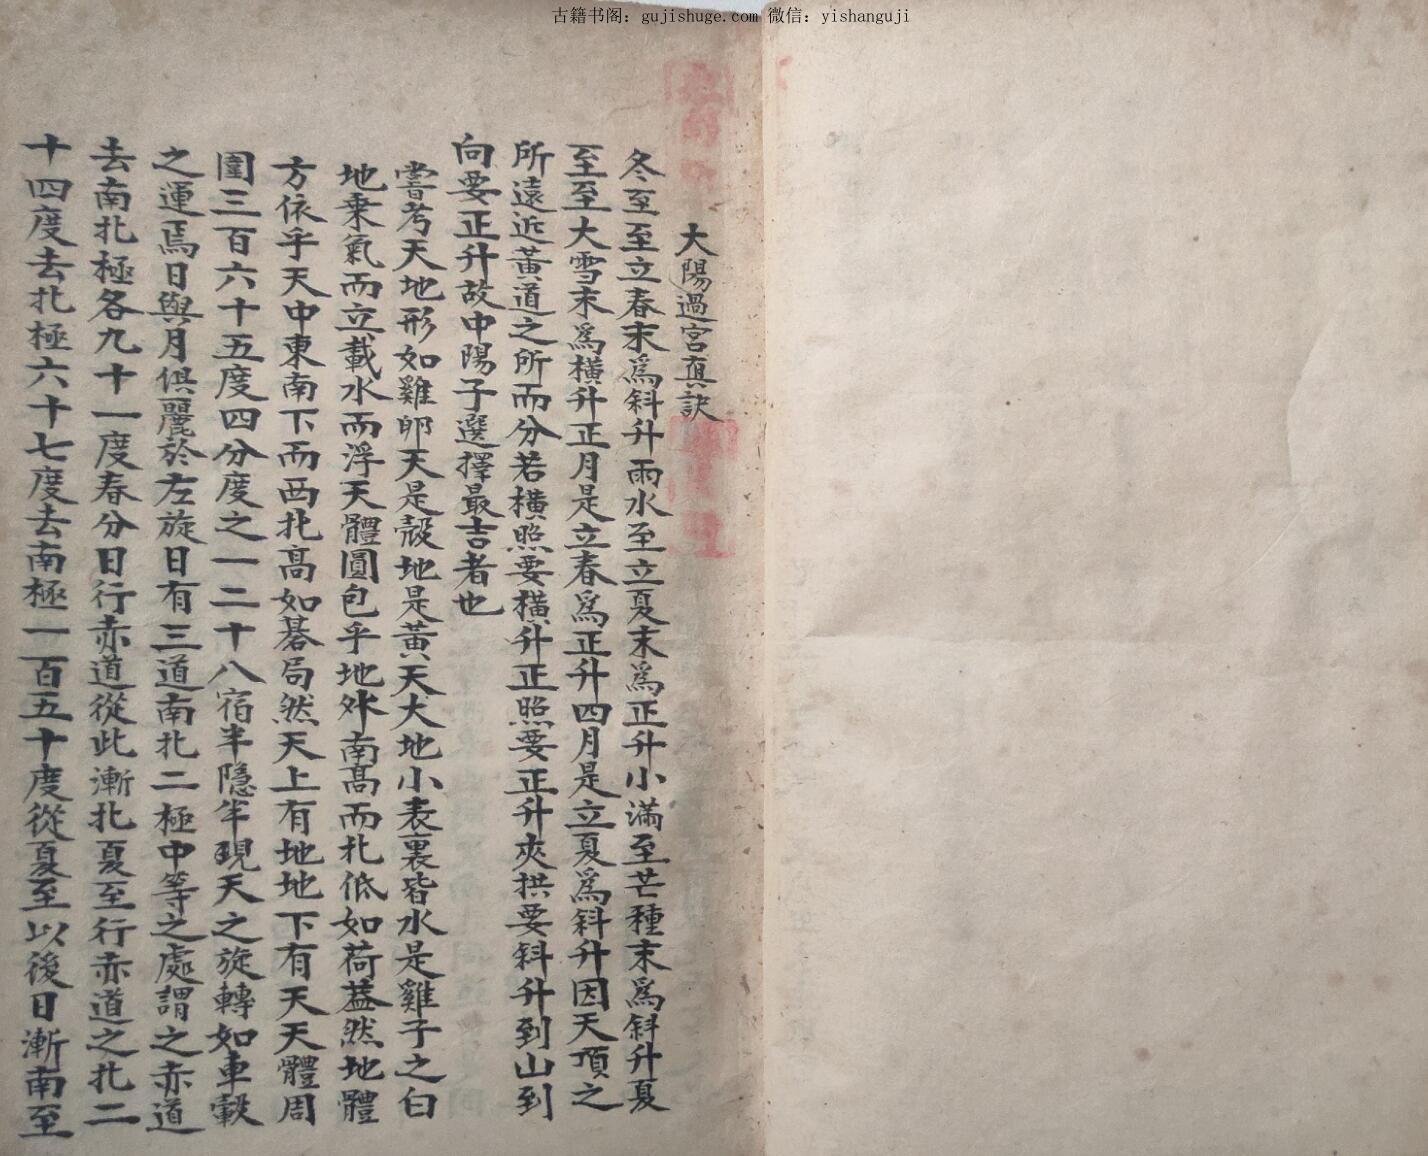 古籍书阁：gujishuge.com 微信：yishanguji
大陽過宮真訣
冬至至立春末為斜升雨水至立夏末為正升小滿至芒種末為斜升夏
至至大雪末為橫升正月是立春為正升四月是立夏為斜升因天頂之
所遠近黃道之所而分若橫照要橫升正照要正升夾拱要斜升到山到
向要正升故中陽子選擇最吉者也
嘗考天地形如雞卵天是殼地是黃天大地小表裏皆水是雞子之白
地乗氣而立載水而浮天體圓包乎地外南高而北低如荷葢然地體
方依乎天中東南下而西北高如碁局然天上有地地下有天天體周
圍三百六十五度四分度之一二十八宿半隱半現天之旋轉如車轂
之運焉日與月俱麗於左旋日有三道南北二極中等之處謂之赤道
去南北極各九十一度春分日行赤道從此漸北夏至行赤道之北二
十四度去北極六十七度去南極一百五十度從夏至以後日漸南至